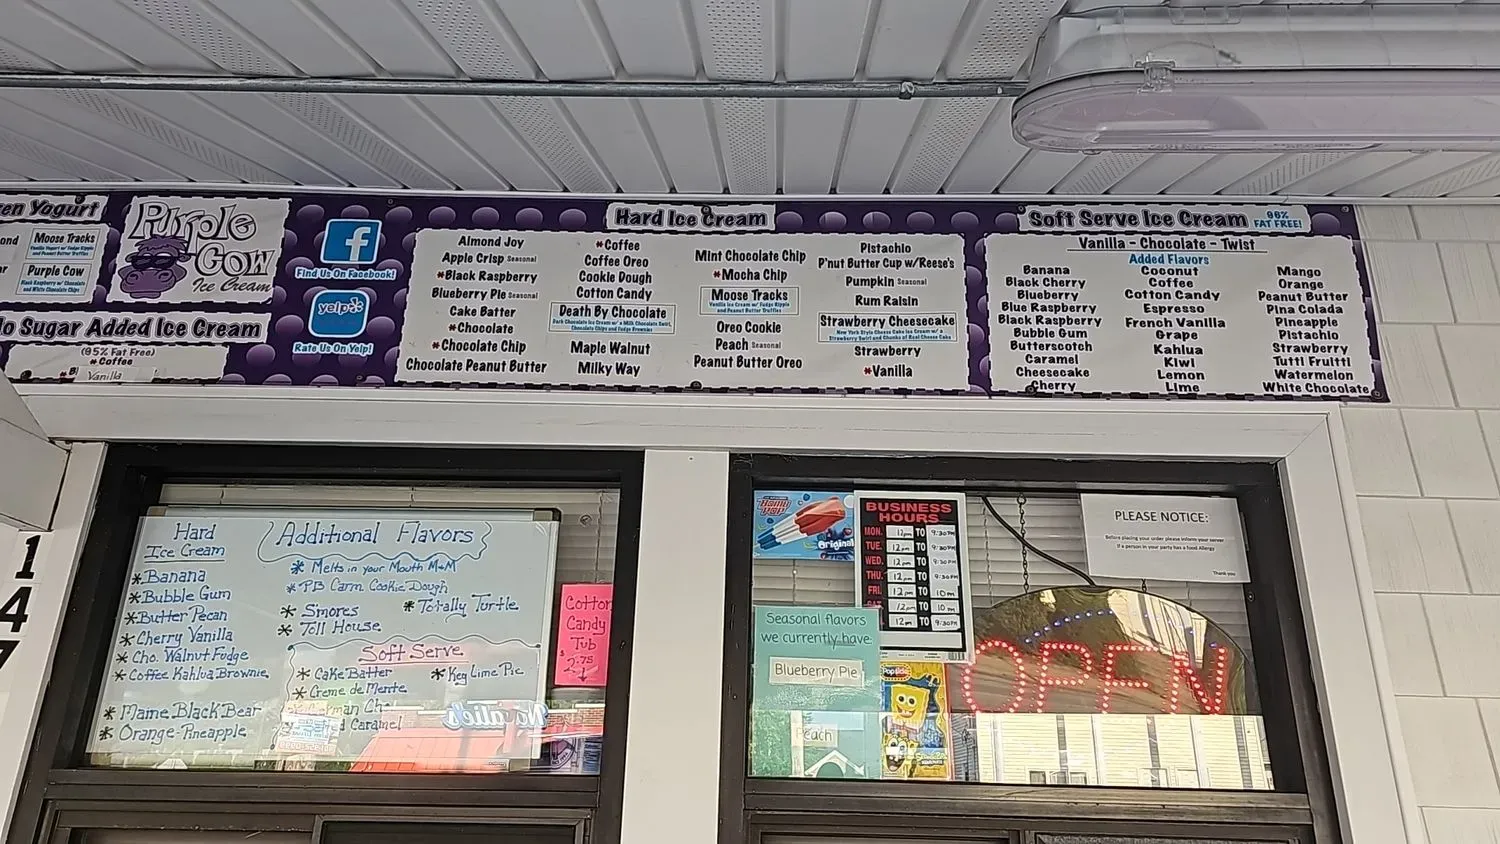 en Yogurt
ond
Moose Tracks
Vanilla Yogurt w/ Fudge Ripple
and Peanut Butter Truffles
Purple Cow
Black Raspberry w/ Chocolate
and White Chocolate Chips
o Sugar Added Ice Cream
(95% Fat Free)
*Coffee
*B
Vanilla
Purple
Cow
Ice Cream
f
Find Us On Facebook!
yelp
Rate Us On Yelp!
Hard Ice Cream
Almond Joy
Apple Crisp Seasonal
*Black Raspberry
Blueberry Pie Seasonal
Cake Batter
*Chocolate
*Chocolate Chip
Chocolate Peanut Butter
*Coffee
Coffee Oreo
Cookie Dough
Cotton Candy
Death By Chocolate
Dark Chocolate Ice Cream w/ a Milk Chocolate Swirl,
Chocolate Chips and Fudge Brownies
Maple Walnut
Milky Way
Mint Chocolate Chip
*Mocha Chip
Moose Tracks
Vanilla Ice Cream w/ Fudge Ripple
and Peanut Butter Truffles
Oreo Cookie
Peach Seasonal
Peanut Butter Oreo
Pistachio
P'nut Butter Cup w/Reese's
Pumpkin Seasonal
Rum Raisin
Strawberry Cheesecake
New York Style Cheese Cake Ice Cream w/ a
Strawberry Swirl and Chunks of Real Cheese Cake
Strawberry
*Vanilla
Soft Serve Ice Cream
96%
FAT FREE!
Vanilla - Chocolate - Twist
Added Flavors
Banana
Black Cherry
Blueberry
Blue Raspberry
Black Raspberry
Bubble Gum
Butterscotch
Caramel
Cheesecake
Cherry
Coconut
Coffee
Cotton Candy
Espresso
French Vanilla
Grape
Kahlua
Kiwi
Lemon
Lime
Mango
Orange
Peanut Butter
Pina Colada
Pineapple
Pistachio
Strawberry
Tutti Fruitti
Watermelon
White Chocolate
1
4
7
Hard
Ice Cream
*Banana
*Bubble Gum
*Butter Pecan
*Cherry Vanilla
*Cho. Walnut Fudge
*Coffee Kahlua Brownie
*Maine Black Bear
*Orange-Pineapple
Additional Flavors
*Melts in your Mouth M+M
*PB Carm Cookie Dough
*Smores
*Totally Turtle
*Toll House
Soft Serve
*Cake Batter
*Key Lime Pie
*Creme de Mente
Caramel
Cotton
Candy
Tub
$2.75
Bomb
Pop
Original
BUSINESS
HOURS
MON. 12pm TO 9:30PM
TUE. 12pm TO 9:30PM
WED. 12pm TO 9:30PM
THU. 12pm TO 9:30PM
FRI. 12pm TO 10PM
SAT. 12pm TO 10PM
12pm TO 9:30PM
PLEASE NOTICE:
Before placing your order please inform your server
if a person in your party has a food Allergy
Thank you
Seasonal flavors
we currently have:
Blueberry Pie
Peach
Popsicle
OPEN